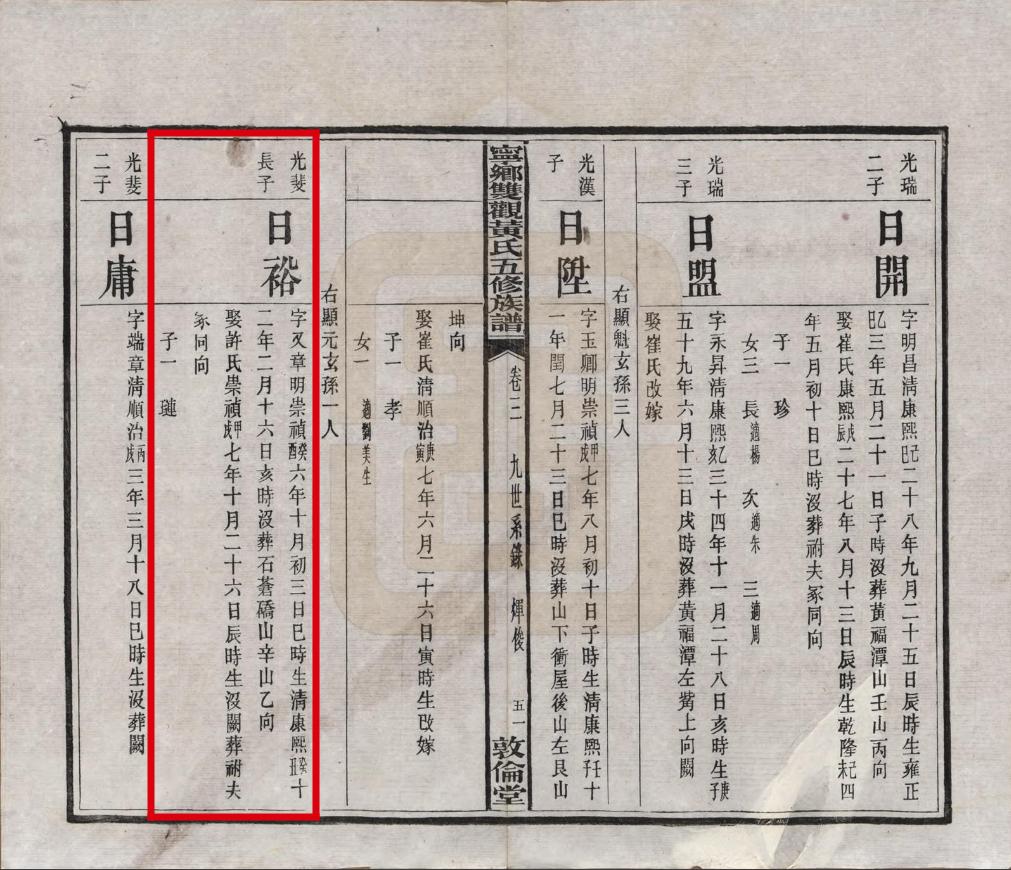 光瑞
二子
日開
字明昌清康熙己巳二十八年九月二十五日辰時生雍正
乙巳三年五月二十一日子時沒葬黃福潭山壬山丙向
娶崔氏康熙戊辰二十七年八月十三日辰時生乾隆己未四
年五月初十日巳時沒葬祔夫冢同向
子一　珍
女三　長適楊　次適朱　三適周
光瑞
三子
日盟
字永昇清康熙乙亥三十四年十一月二十八日亥時生庚子
五十九年六月十三日戌時沒葬黃福潭左觜上向闕
娶崔氏改嫁
右顯魁玄孫三人
光漢
子
日陞
字玉卿明崇禎甲戌七年八月初十日子時生清康熙壬子十
一年閏七月二十三日巳時沒葬山下衝屋後山左艮山
寧鄉雙觀黃氏五修族譜
卷二　九世系錄　煇俊
五一
敦倫堂
坤向
娶崔氏清順治庚寅七年六月二十六日寅時生改嫁
子一　孝
女一　適劉美生
右顯元玄孫一人
光斐
長子
日裕
字又章明崇禎癸酉六年十月初三日巳時生清康熙癸丑十
二年二月十六日亥時沒葬石蒼礄山辛山乙向
娶許氏崇禎甲戌七年十月二十六日辰時生沒闕葬祔夫
冢同向
子一　璉
光斐
二子
日庸
字端章清順治丙戌三年三月十八日巳時生沒葬闕